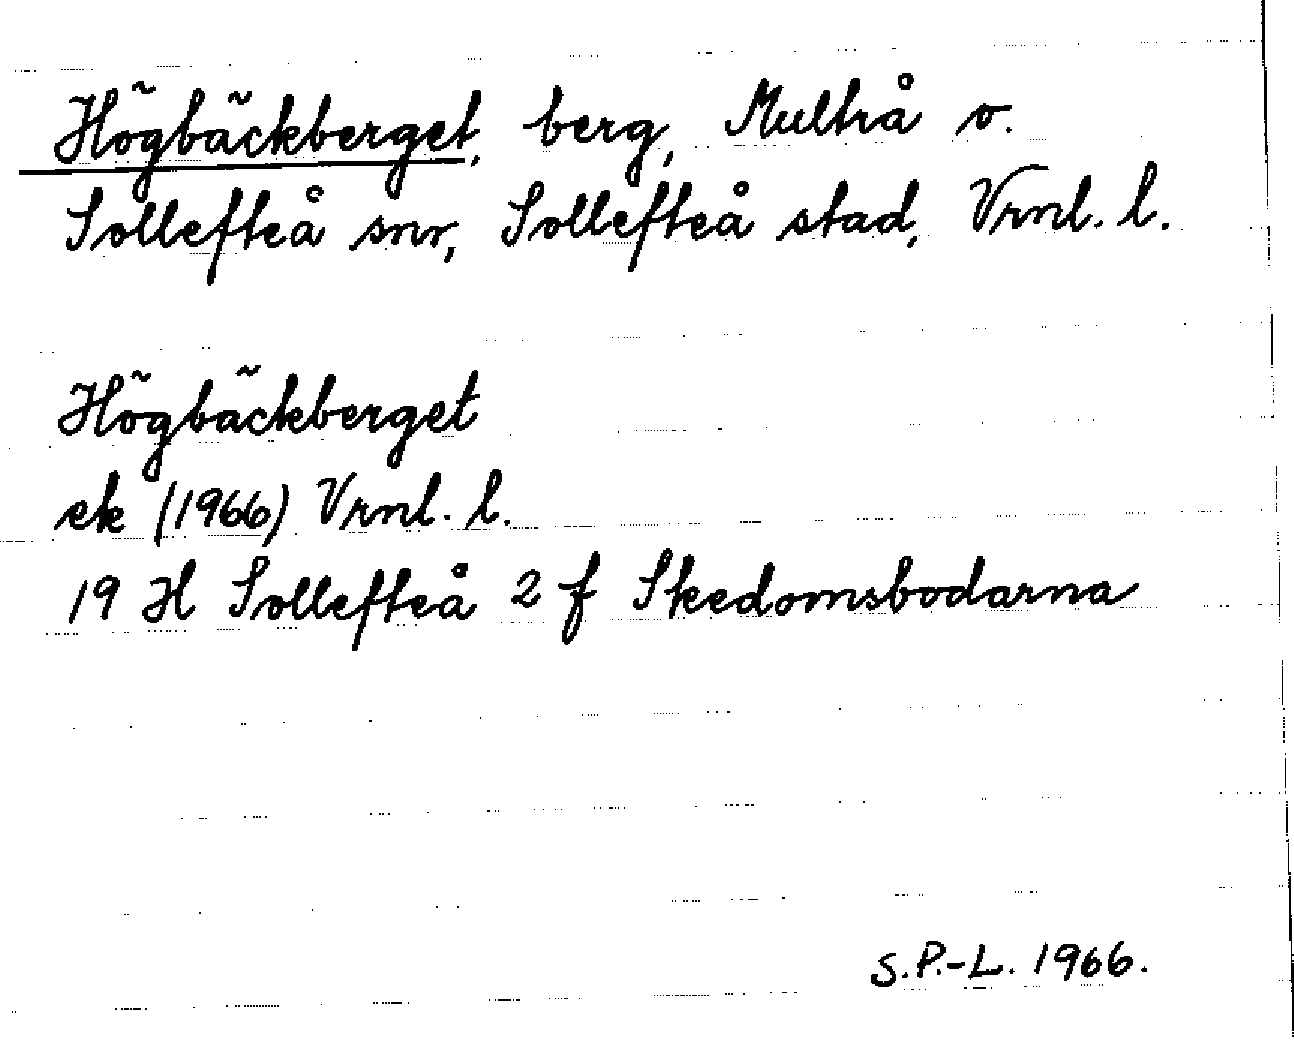 Högbäckberget, berg, Multrå o.
Sollefteå snr, Sollefteå stad, Vrnl. l.
Högbäckberget
ek (1966) Vrnl. l.
19 H Sollefteå 2 f Skedomsbodarna
S.P.-L. 1966.